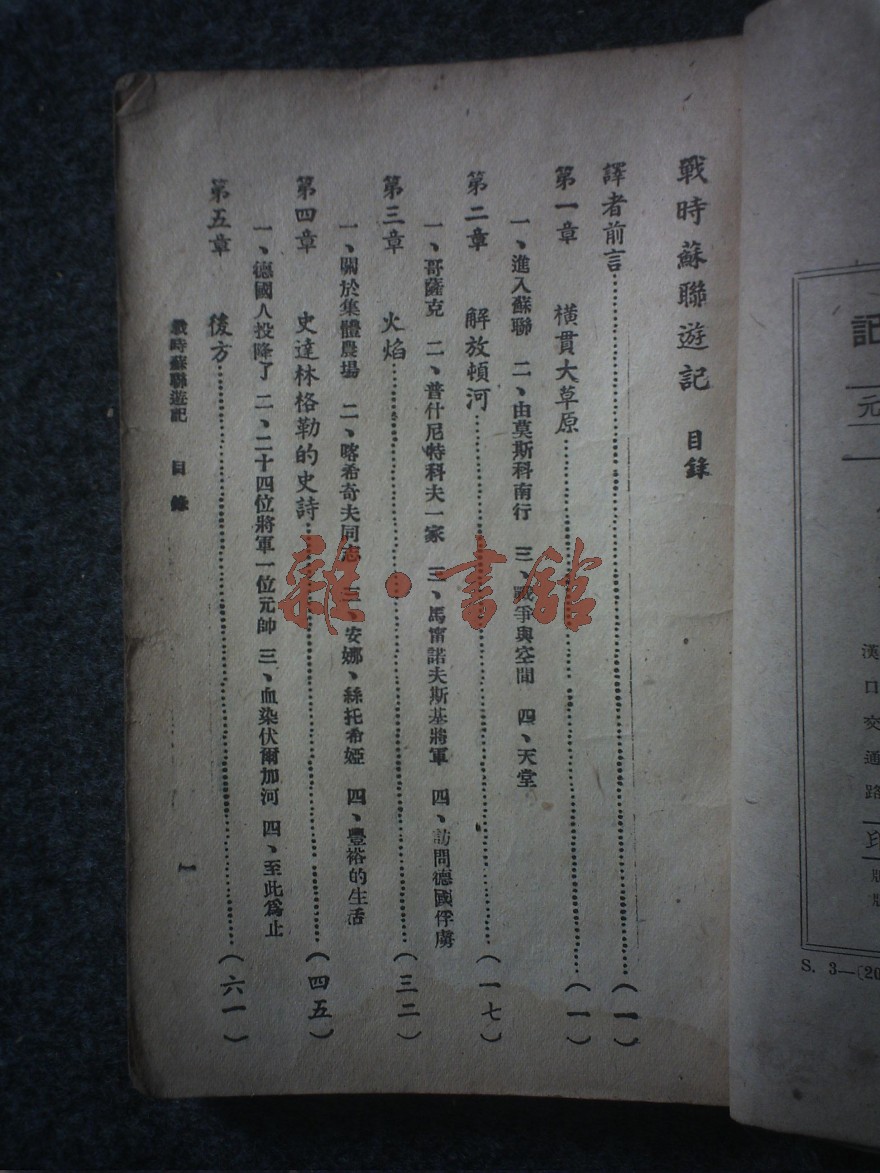 戰時蘇聯遊記 目錄
譯者前言……(一)
第一章 橫貫大草原……(一)
一、進入蘇聯 二、由莫斯科南行 三、戰爭與空間 四、天堂
第二章 解放頓河……(一七)
一、哥薩克 二、普什尼特科夫一家 三、馬甯諾夫斯基將軍 四、訪問德國俘虜
第三章 火焰……(三二)
一、關於集體農場 二、喀希奇夫同志 三、安娜、絲托希婭 四、豐裕的生活
第四章 史達林格勒的史詩……(四五)
一、德國人投降了 二、二十四位將軍一位元帥 三、血染伏爾加河 四、至此為止
第五章 後方……(六一)
戰時蘇聯遊記 目錄 一
雜·書館
記
元
漢口交通路
印
S. 3—(20